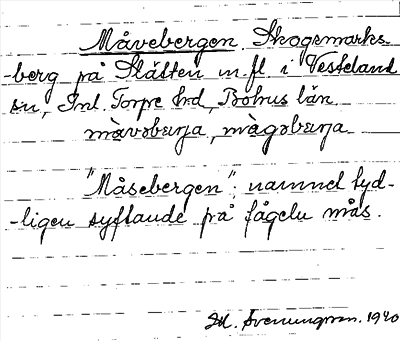 Måvebergen. Skogsmarks-
-berg på Slätten m. fl. i Vesteland
sn, Inl. Torpe hd, Bohus län.
màvəbærja, màgəbærja
"Måsebergen"; namnet tyd-
-ligen syftande på fågeln mås.
Svenungsson. 1940